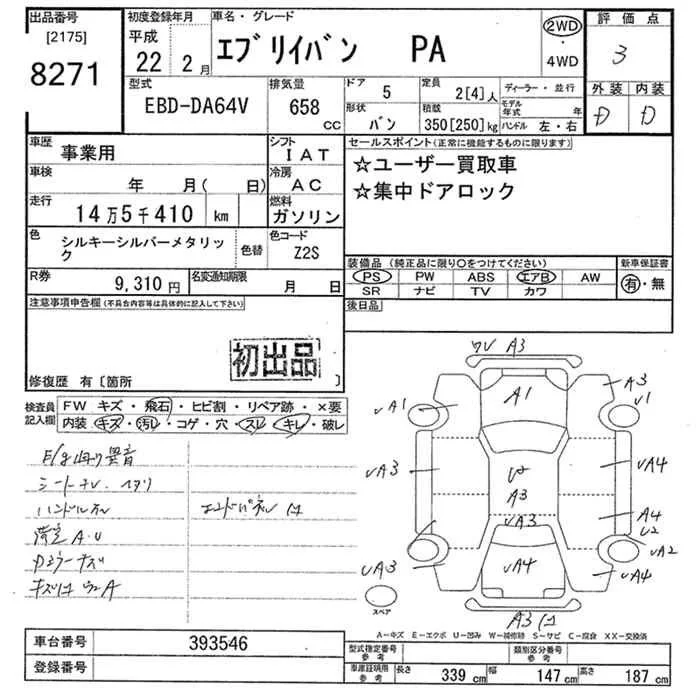 出品番号
[2175]
8271
初度登録年月
平成
22年 2月
車名・グレード
エブリイバン PA
2WD
・
4WD
評価点
3
外装 内装
D D
型式
EBD-DA64V
排気量
658 cc
ドア
5
定員
2[4]人
ディーラー・並行
形状
バン
積載
350[250]kg
モデル年式 年
ハンドル 左・右
車歴
事業用
シフト
IAT
車検
年 月( 日)
冷房
AC
走行
14万5千410 km
燃料
ガソリン
セールスポイント(正常に機能するものに限ります)
☆ユーザー買取車
☆集中ドアロック
色
シルキーシルバーメタリック
色替
色コード
Z2S
装備品(純正品に限り○をつけてください)
PS PW ABS エアB AW
SR ナビ TV カワ
新車保証書
有・無
R券
9,310円
名変通知期限
月 日
後日品
注意事項申告欄(不具合内容等は具体的に記入して下さい)
初出品
修復歴 有〔箇所 〕
検査員記入欄
FW キズ・飛石・ヒビ割・リペア跡・×要
内装 キズ・汚レ・コゲ・穴・スレ・キレ・破レ
異音
ハンドル
A.U
A3
A1
A3
A1
A3
A3
A4
A4
A3
A2
A3
A4
A4
A3
スペア
A-キズ E-エクボ U-凹み W-補修跡 S-サビ C-腐食 XX-交換済
車台番号
393546
登録番号
型式指定番号 参考
類別区分番号 参考
車庫証明用 参考
長さ 339 cm
幅 147 cm
高さ 187 cm